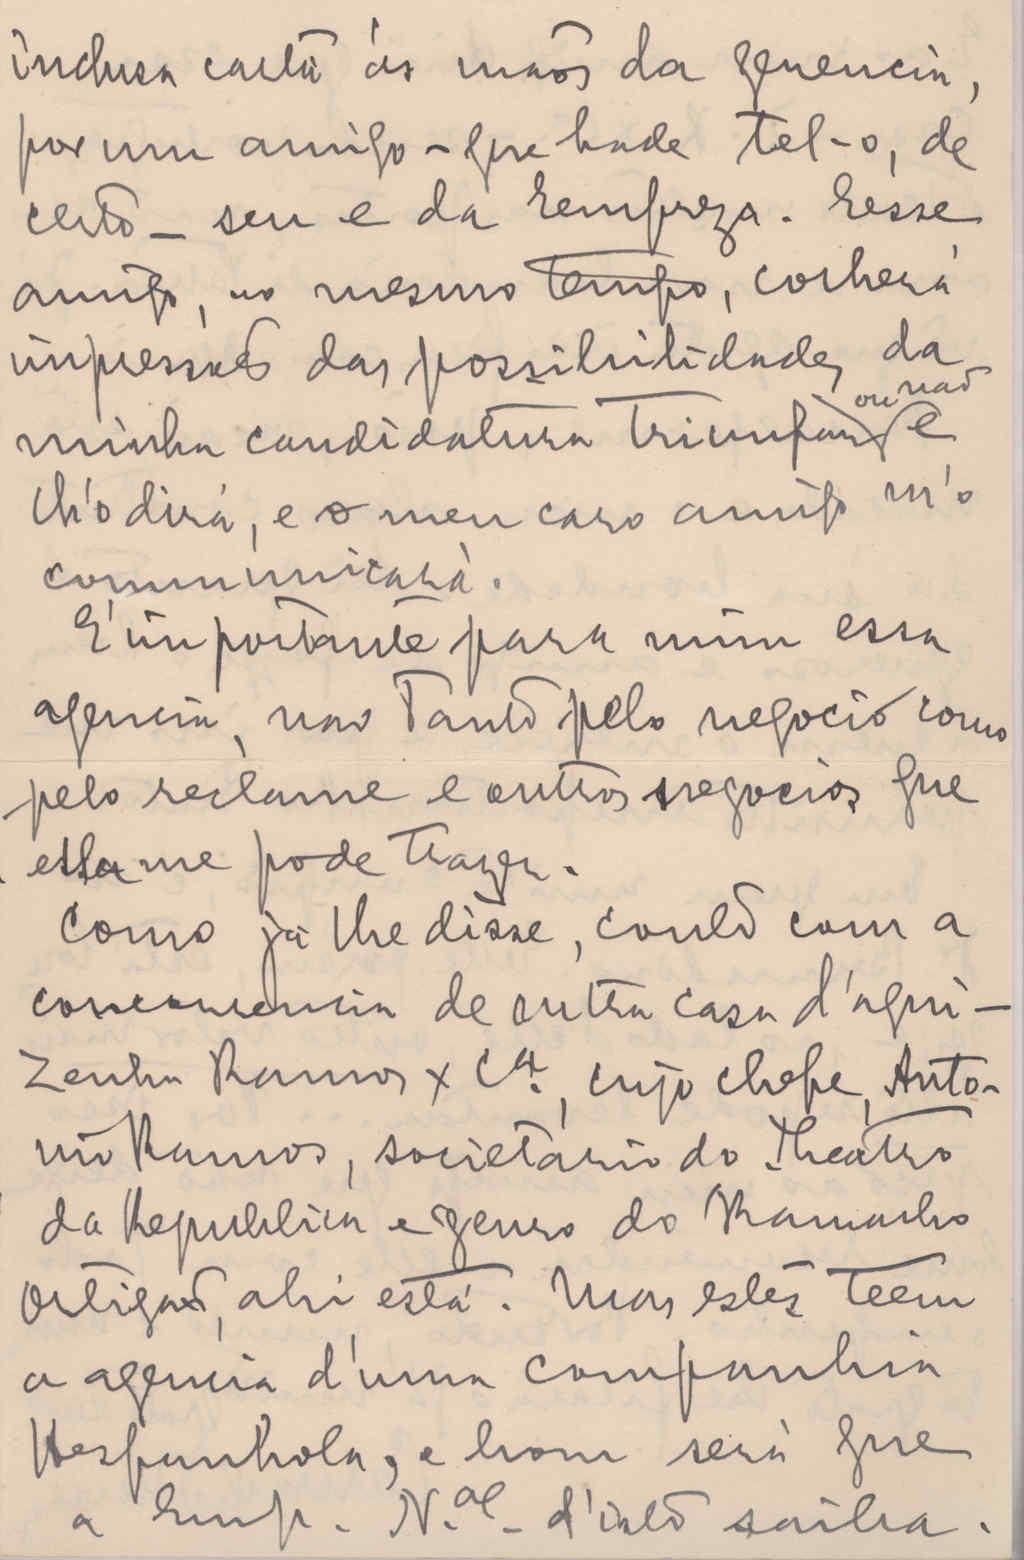 inclusa carta ás mãos da gerencia,
por um amigo – que hade tel-o, de
certo – seu e da Rempreza. Esse
amigo, ao mesmo tempo, colherá
impressões das possibilidades da
minha candidatura triumfar ou não e
lh'o dirá, e o meu caro amigo m'o
communicará.
E' importante para mim essa
agencia, não tanto pelo negocio como
pelo reclame e outros negocios que
ella me pode trazer.
Como já lhe disse, conto com a
concorrencia de outra casa d'aqui –
Zenha Ramos & Cª., cujo chefe, Anto-
nio Ramos, societario do Theatro
da Republica e genro do Ramalho
Ortigão, ahi está. Mas estes teem
a agencia d'uma companhia
Hespanhola, e bom será que
a Emp. N.al – d'isto saiba.